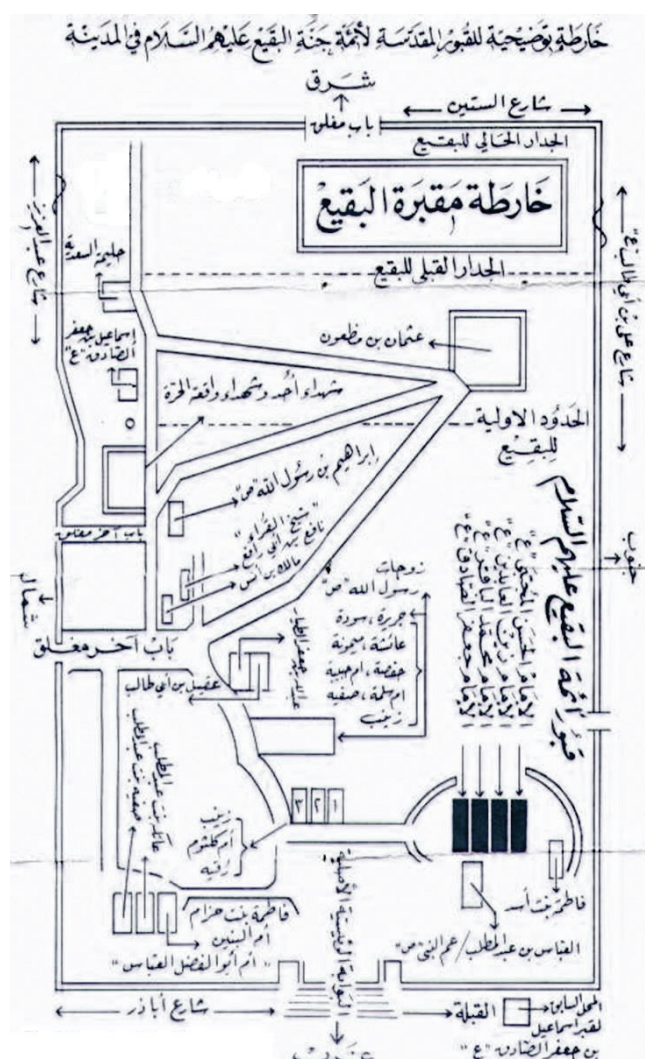 خَارطة تَوضيحية للقبور المقدسة لأئمة جنة البقيع عليهم السلام في المدينة
شرق
شارع الستين
باب مغلق
الجدار الحالي للبقيع
خارطة مقبرة البقيع
شارع عبد العزيز
شارع علي بن أبي طالب "ع"
حليمة السعدية
الجدار القبلي للبقيع
اسماعيل بن جعفر
الصادق "ع"
عثمان بن مظعون
شهداء أحد وشهداء واقعة الحرة
الحدود الاولية
للبقيع
إبراهيم بن رسول الله "ص"
"شيخ القراء"
نافع بن أبي رافع
مالك بن أنس
باب آخر مغلق
شمال
جنوب
قبور أئمة البقيع عليهم السلام
الإمام الحسن المجتبى "ع"
الإمام زين العابدين "ع"
الإمام محمد الباقر "ع"
الإمام جعفر الصادق "ع"
زوجات
رسول الله "ص"
جويرية، سودة
عائشة، ميمونة
حفصة، ام حبيبة
ام سلمة، صفيه
زينب
باب آخر مغلق
عبد الله بن جعفر الطيار
عقيل بن أبي طالب
عاتكه بنت عبد المطلب
صفيه بنت عبد المطلب
١
٢
٣
زينب
أم كلثوم
رقيه
فاطمة بنت أسد
العباس بن عبد المطلب / عم النبي "ص"
فاطمة بنت حزام
أم البنين
"أم أبو الفضل العباس"
البوابة الرئيسية الأصلية
شارع أباذر
القبلة
المحل السابق
لقبر اسماعيل
بن جعفر الصادق "ع"
غرب